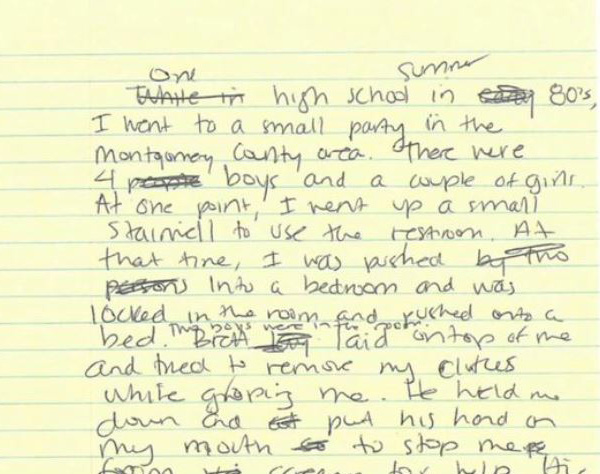 One summer
While in high school in early 80's,
I went to a small party in the
Montgomery County area. There were
4 people boys and a couple of girls.
At one point, I went up a small
stairwell to use the restroom. At
that time, I was pushed by two
persons into a bedroom and was
locked in the room and pushed onto a
bed. Two boys were in the room. Brett laid ontop of me
and tried to remove my clothes
while groping me. He held me
down and put his hand on
my mouth to stop me
from for help